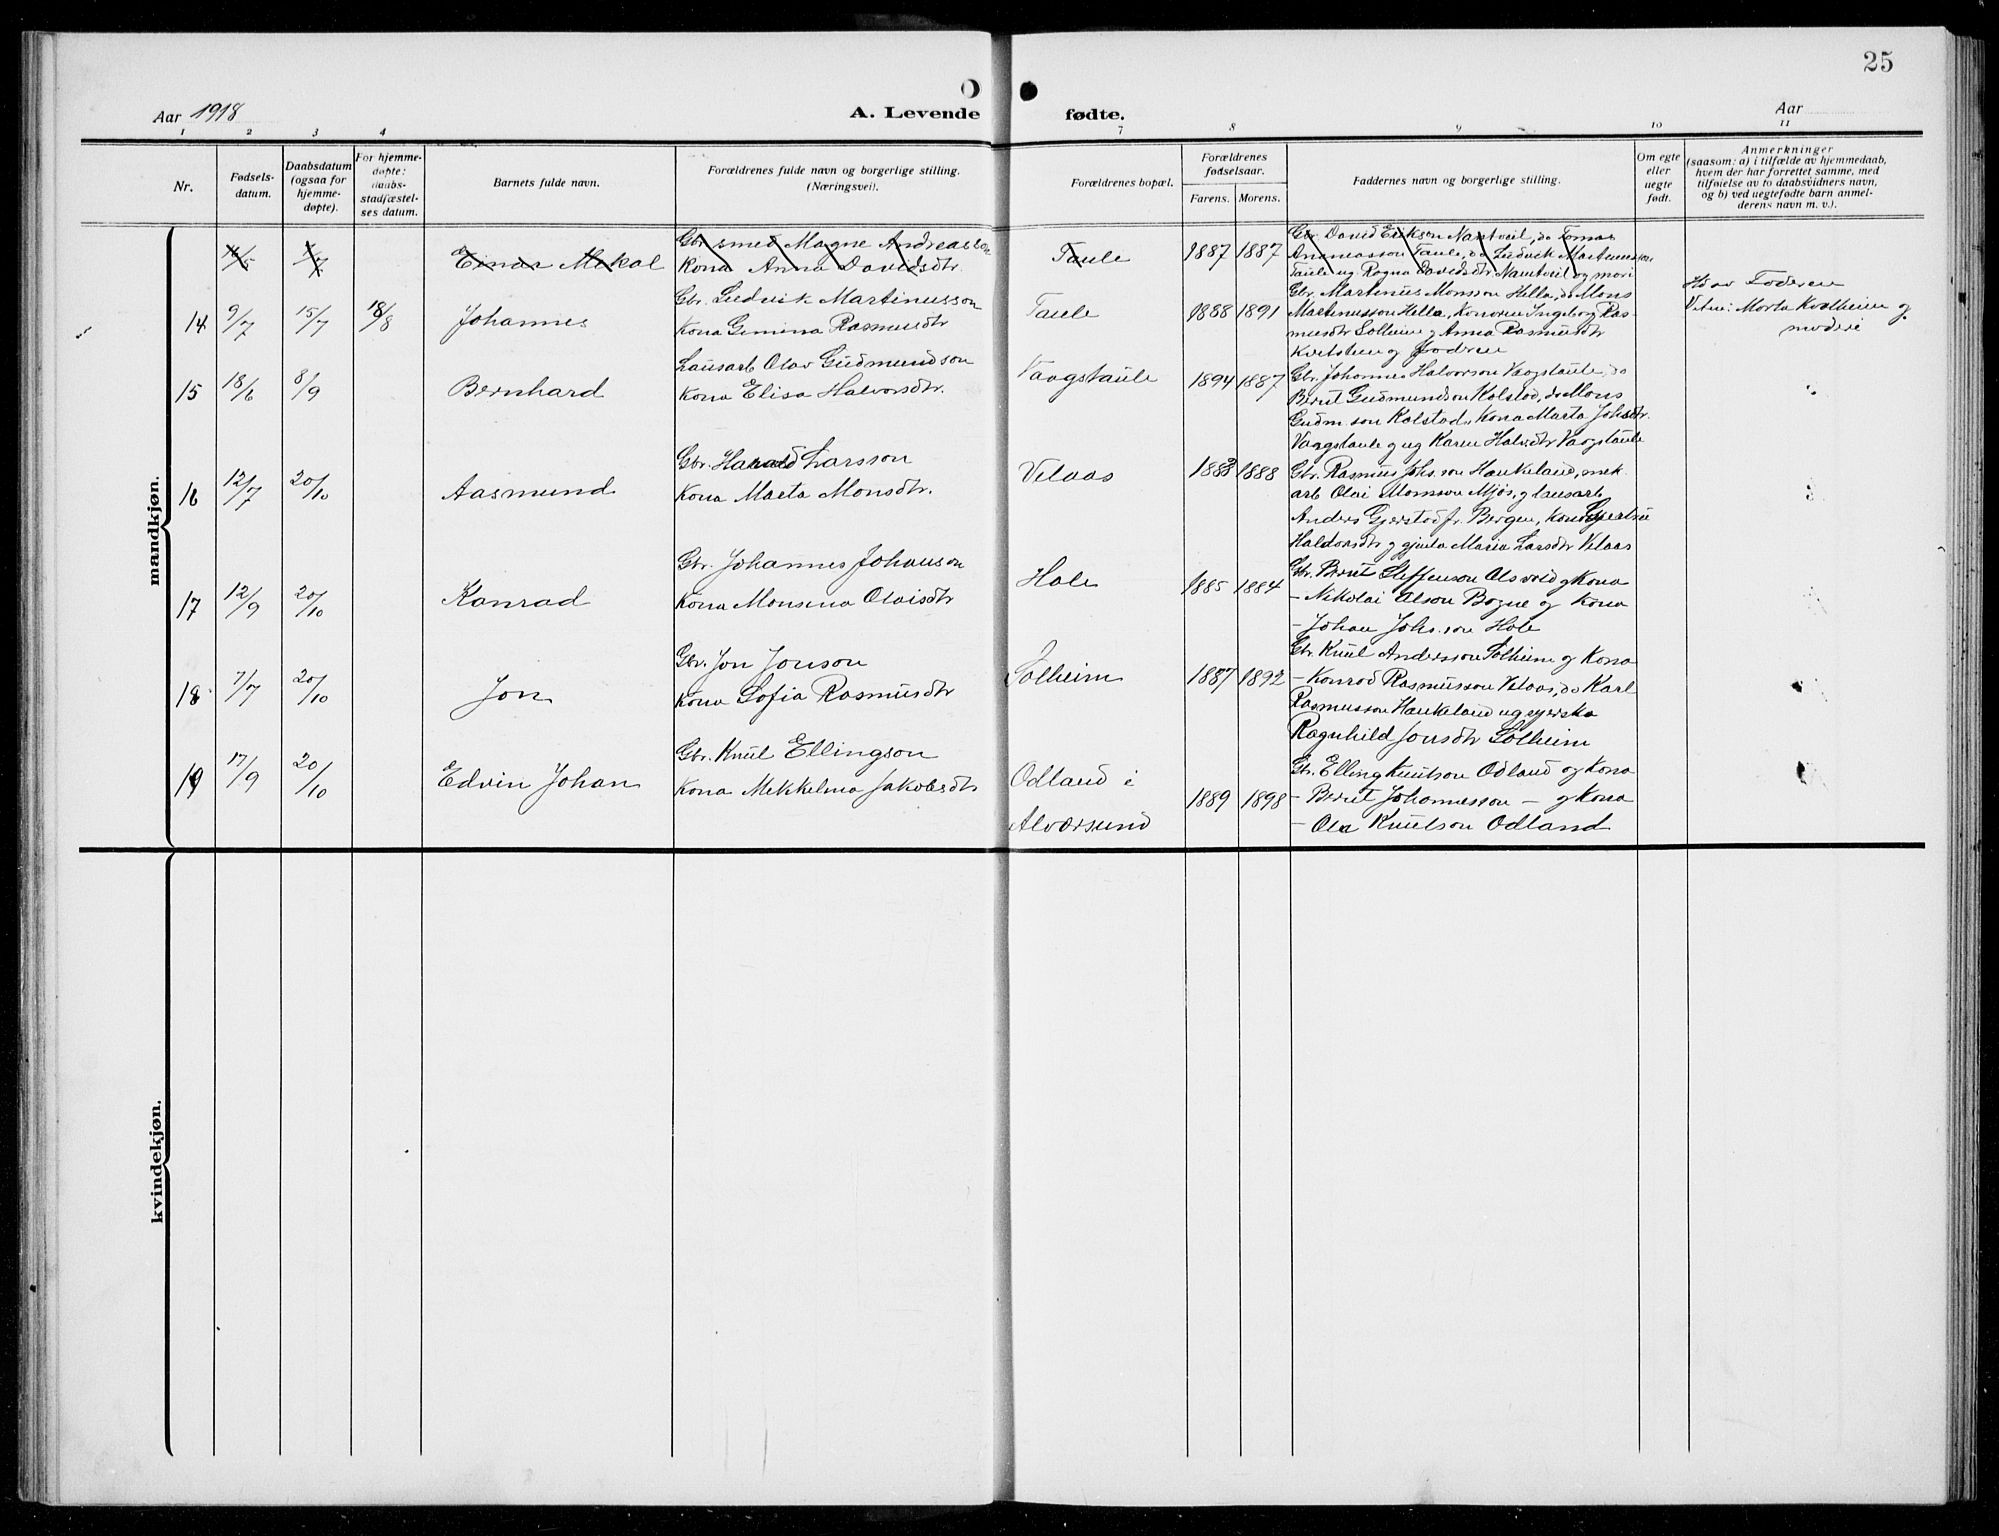 25
Aar 1918
A. Levende
fødte.
Aar
1 2 3 4
7 8 9 10 11
Nr.
Fødsels-
datum.
Daabsdatum
(ogsaa for
hjemme-
døpte).
For hjemme-
døpte:
daabs-
stadfæstel-
ses datum.
Barnets fulde navn.
Forældrenes fulde navn og borgerlige stilling.
(Næringsvei).
Forældrenes bopæl.
Forældrenes
fødselsaar.
Farens. Morens.
Faddernes navn og borgerlige stilling.
Om egte
eller
uegte
født.
Anmerkninger
(saasom: a) i tilfælde av hjemmedaab,
hvem der har forrettet samme, med
tilføielse av to daabsvidners navn,
og b) ved uegtefødte barn anmel-
derens navn m. v.).
mandkjøn.
Einar Mekal
Gbr smed Magne Andreasson
Kona Anna Davidsdtr.
Taule
1887 1887
Gbr David Erikson Nautveit, do Tomas
Ananiasson Taule, do Ludvik Martinusson
Taule ug Ragna Davidsdtr Nautveit og mori
14 9/7 15/7 18/8
Johannes
Gbr. Ludvik Martinusson
Kona Gemina Rasmusdtr
Taule
1888 1891
Gbr. Martinus Monsson Hella, do Mons
Martinusson Hella, Konorne Ingeborg Ras-
musdtr Solheim og Anna Rasmusdtr
og Foderen
Hd av Foderen
Vitne: Marta Kvalheim og
modere
15 18/6 8/9
Bernhard
Lausarb Olav Gudmundson
Kona Elisa Halvorsdtr.
Vaagstaule
1894 1887
Gbr. Johannes Halvorson Vaagstaule, do
Berut Gudmundson Kolstad, do Mons
Gudm.son Kolstad, Kona Marta Johsdtr.
Vaagstaule og ug Karen Halvsdtr Vaagstaule
16 12/7 20/10
Aasmund
Gbr. Harald Larsson
Kona Marta Monsdtr.
Velaas
1883 1888
Gbr. Rasmus Johs.son Haukeland, mek.
arb Olai Monsson Mjøs, og lausarb
Anders Gjerstad fr. Bergen, Kona Gjertrue
Haldorsdtr og gjenta Maria Larsdtr Velaas
17 12/9 20/10
Konrad
Gbr. Johannes Johanson
Kona Monsina Olaisdtr
Hole
1885 1884
Gbr. Berut Steffenson Alsvold og Kona
– Nikolai Olson Bogne og Kona
– Johan Johs.son Hole
18 7/7 20/10
Jon
Gbr. Jon Jonson
Kona Sofia Rasmusdtr
Solheim
1887 1892
Gbr. Knut Andersson Solheim og Kona
– Konrad Rasmusson Velaas, do Karl
Rasmusson Haukeland ug syerska
Ragnhild Jonsdtr Solheim
19 17/9 20/10
Edvin Johan
Gbr. Knut Ellingson
Kona Mekkelina Jakobsdtr
Odland i
Alversund
1889 1898
Gbr. Elling Knutson Odland og Kona
– Berut Johannesson – og Kona
– Ola Knutson Odland
kvindekjøn.